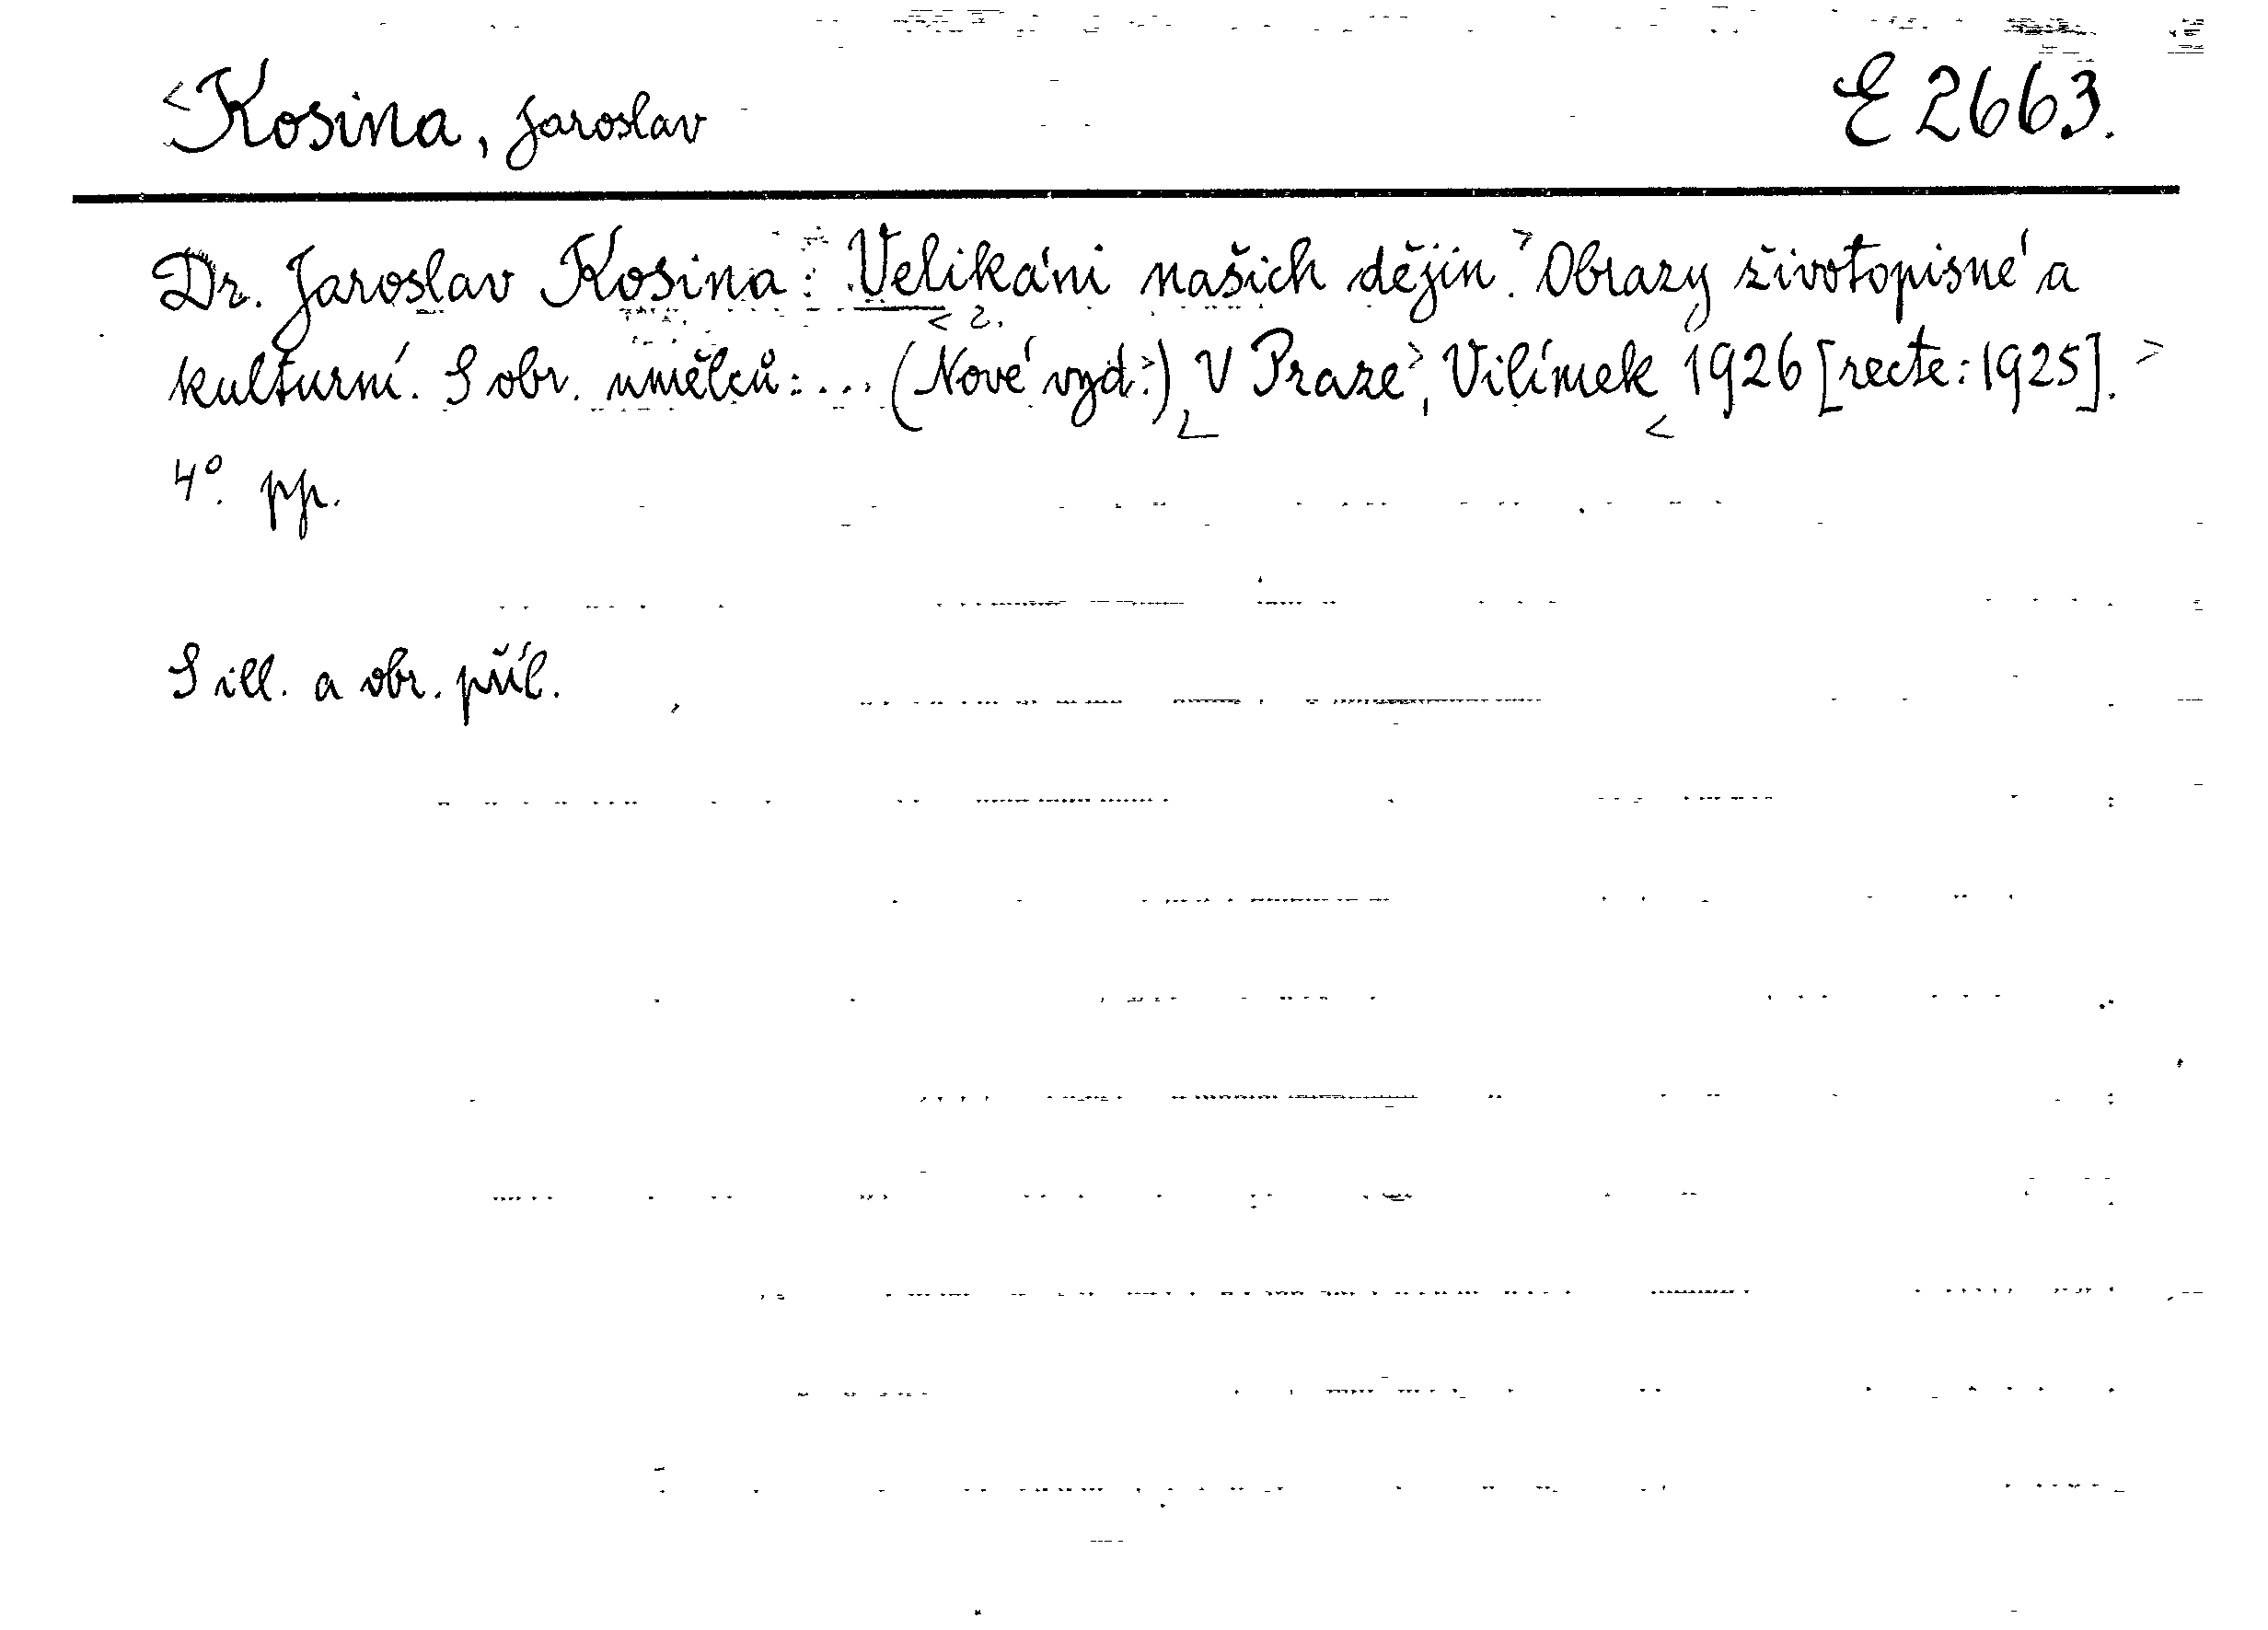 Kosina, Jaroslav E 2663.
Dr. Jaroslav Kosina: Velikáni našich dějin. Obrazy životopisné a
kulturní. S obr. umělců: ... (Nové vyd.) V Praze, Vilímek 1926 [recte: 1925].
4° pp.
S ill. a obr. příl.